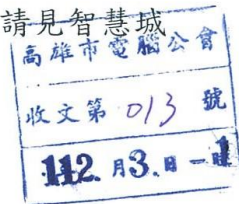 請見智慧城
高雄市電腦公會
收文第 013 號
112. 月3. 日 -1